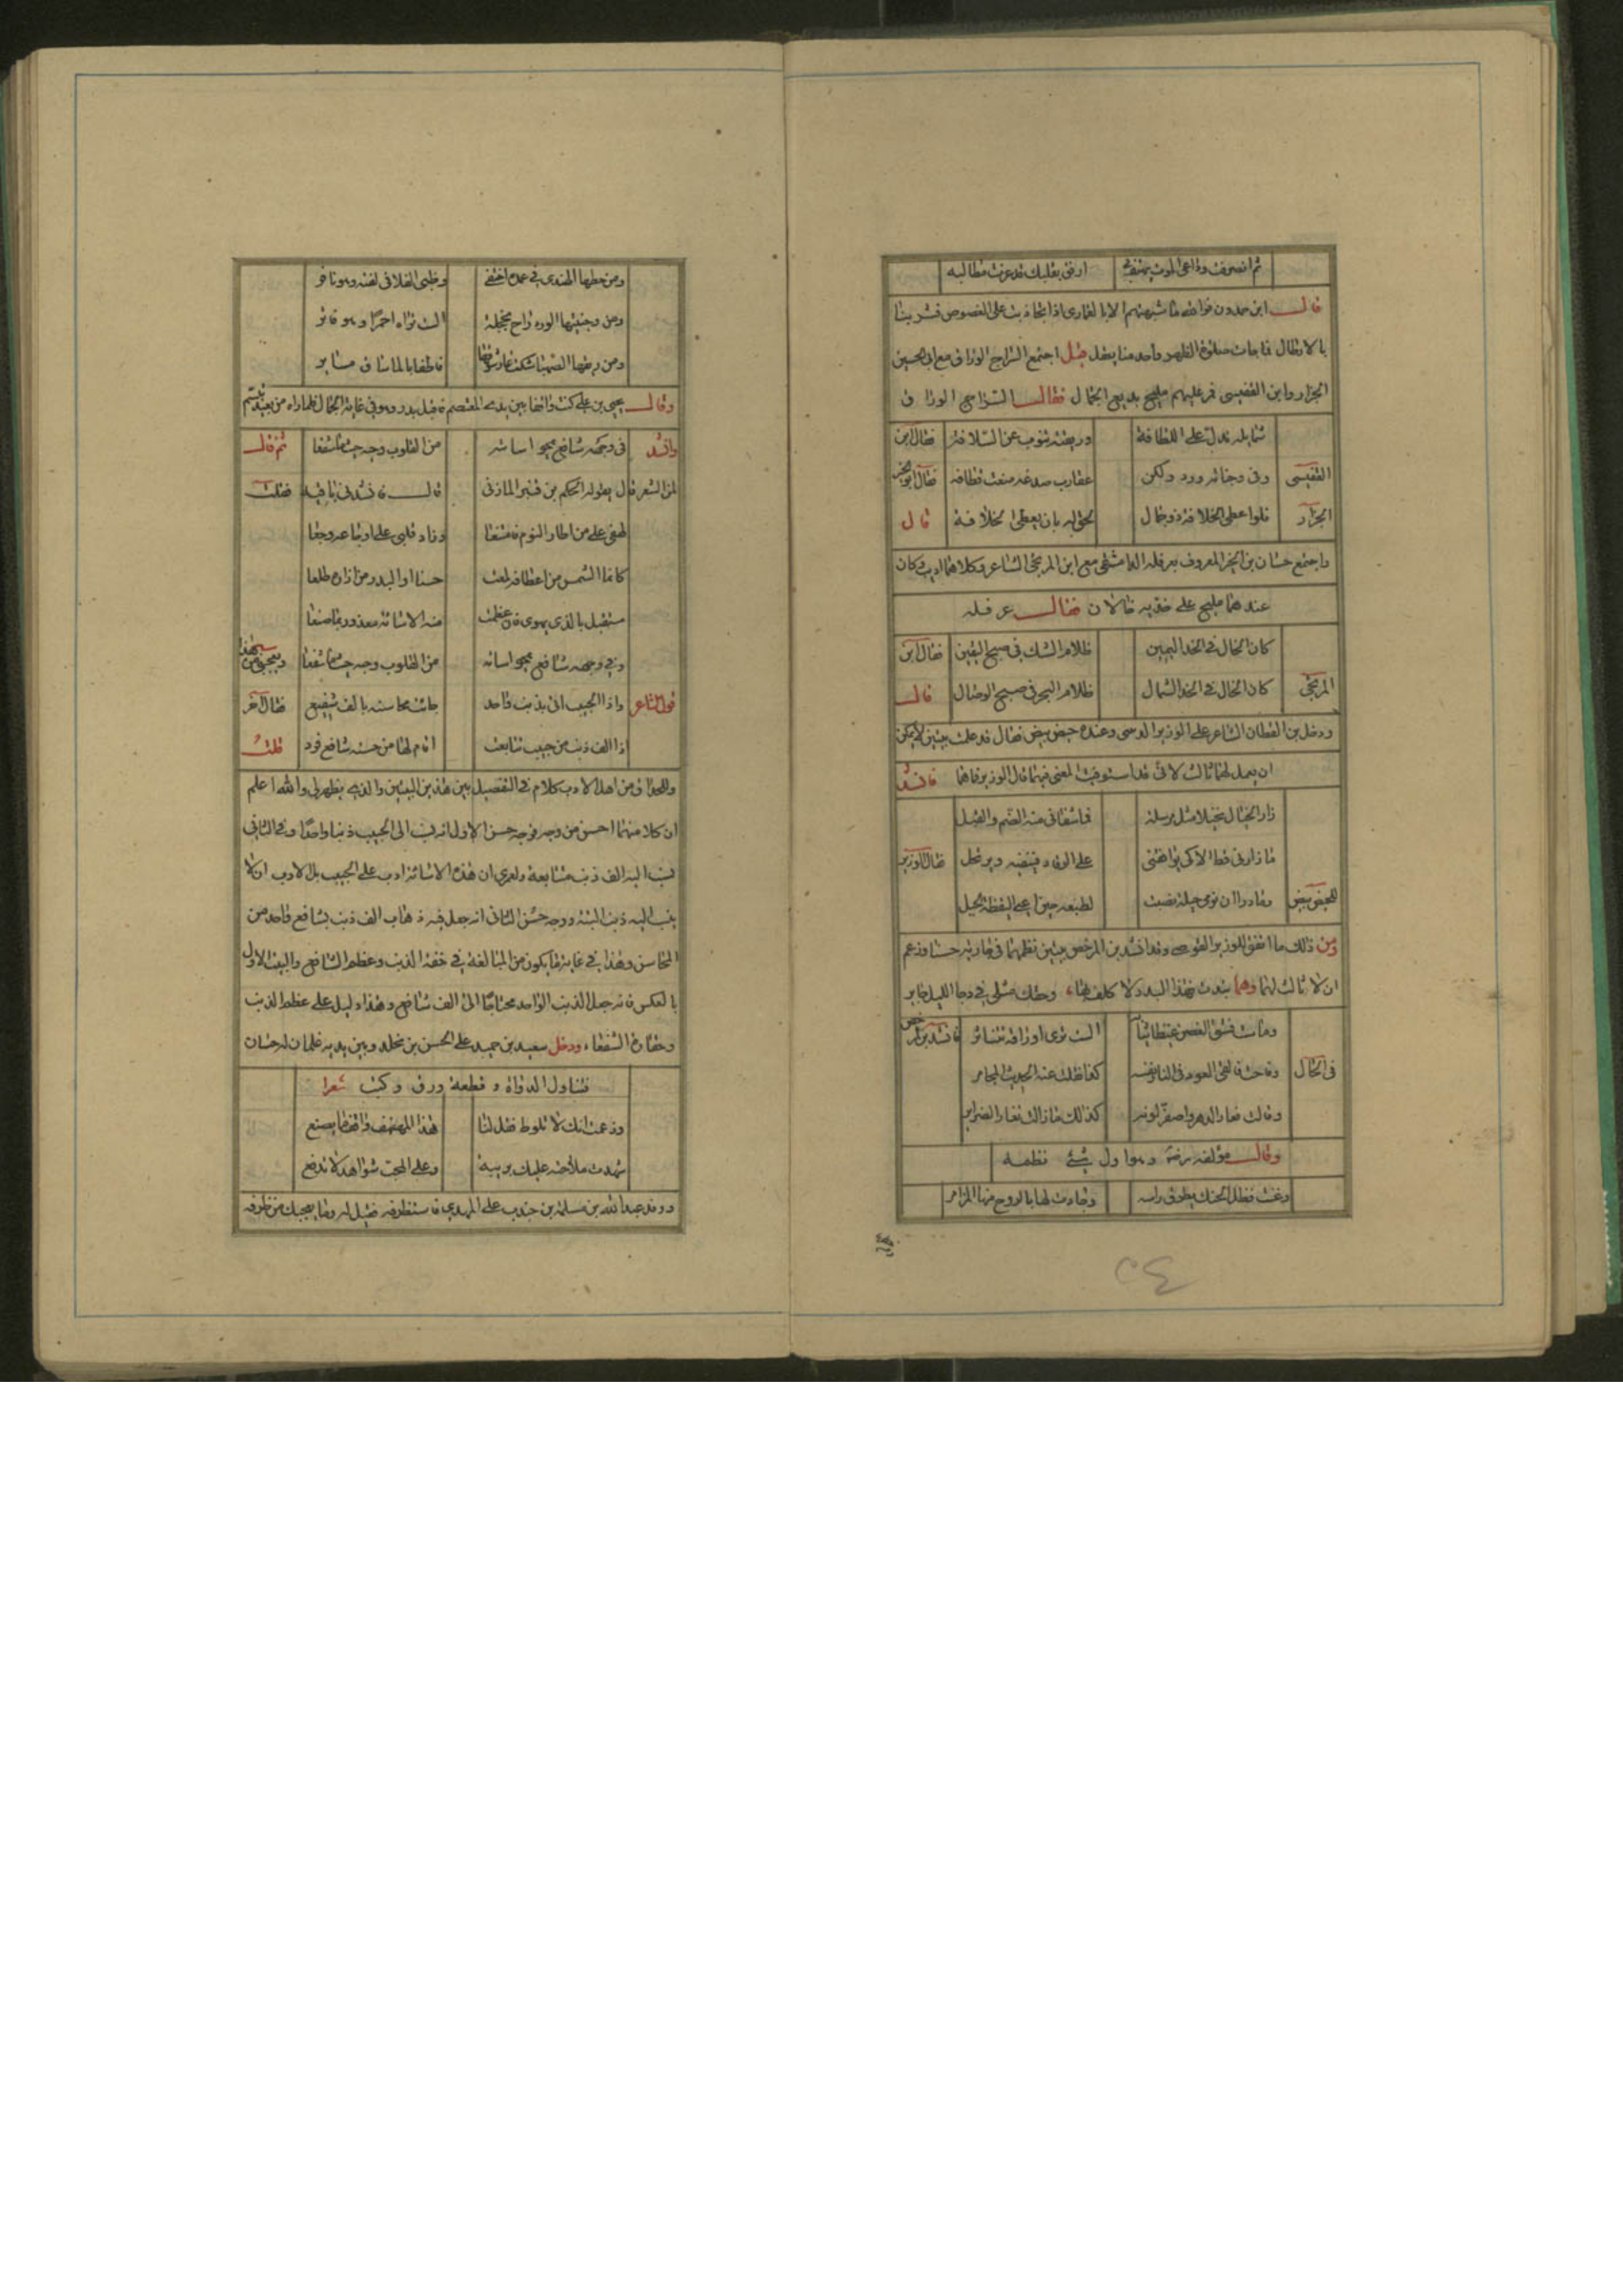 ثم انصرفت وداعى الموت يهتف بى ارفق بقلبك قد عزت مطالبه
قال ابن حمدون فوالله ما شبهتهم الا بالقمارى اذا تجاذبت على الغصوص فشربنا
بالارطال فما جات صلوة الظهر واحد منا يعقل قيل اجتمع السراج الوراق مع ابى الحسين
الجزار وابن النفيسى فمر عليهم مليح بديع الجمال فقال السراج الوراق
شمايله تدل على اللطافة وريقته تنوب عن السلافة فقال ابن
النفيسى وفى وجناته ورد ولكن عقارب صدغه منعت قطافه فقال ابو الحسين
الجزار فلو اعطى الخلافة ذو جمال لحق له بان يعطى الخلافة قال
واجتمع حسان بن المعروف بعرقلة الدمشقى مع ابن المريخى الشاعر وكلاهما اديب وكان
عندهما مليح على خديه خالان فقال عرقله
كان الخال فى الخد اليمين ظلام الشك فى صبح اليقين فقال ابن
المريخى كان الخال فى الخد الشمال ظلام الهجر فى صبح الوصال قال
ودخل بن القطان الشاعر على الوزير وعنده حيص بيص فقال قد عملت بيتين لا يمكن
ان يعمل لهما ثالث لانى قد استوفيت المعنى فيهما قال الوزير هاتهما فانشد
زار الخيال بخيلا مثل مرسله فما شفانى منه الضم والقبل
ما زارنى قط الا كى يوافقنى على الرقاد فينفيه ويرتحل فقال الوزير
لحيص بيص وما درا ان نومى حيلة نصبت لطيفه حين اعيى اليقظة الحيل
ومن ذلك ما اتفق للوزير وقد انشد بن المرخص بيتين نظمهما فى جاريه حسنا وزعم
ان لا ثالث لهما وهما بدت فهذا البدر لا كلف بها وحقك مثلى فى دجا الليل حاير
وماست فشق الغصن غيظا ثيابه الست ترى اوراقه تتناثر فانشد بن المرخص
فى الحال وفاحت فالقى العود فى النار نفسه كذا نقلت عنه الحديث المجامر
وقالت فغار الدر واصفر لونه كذلك ما زالت تغار الضراير
وقال مؤلفه وهو اول شئ نظمه
وغنت فظل الجنك يطرق راسه وجادت لها بالروح منها المزامر
٤٥
ومن لحظها الهندى فى غمده اختفى وظبى الفلا فى لفته وهو نافر
ومن وجنتيها الورد راح بخجلة الست تراه احمرا وهو فاتر
فاطفا بالماسا فى مسابر
وقال يحيى بن على كنت واقفا بين يدى المعتصم فاقبل بدر وهو فى غاية الجمال فلما راه من بعيد تبسم
وانشد فى وجهه شافع يمحو اساءته من القلوب وجيه حيثما شفعا ثم قال
لمن الشعر قال يقوله الحكم بن قنبر المازنى قال فانشدنى باقيه فقلت
لهفى على من اطار النوم فامتنعا وزاد قلبى على اوجاعه وجعا
كانما الشمس من اعطافه لمعت حسنا او البدر من ازراره طلعا
مستقبل بالذى يهوى وان عظمت منه الاساءة معذور بما صنعا
وفى وجهه شافع يمحو اساته من القلوب وجيه حيثما شفعا
قول الشاعر واذا الحبيب اتى بذنب واحد جات محاسنه بالف شفيع فقال آخر
اذا الف ذنب من حبيب تتابعت اقام لها من حسنه شافع فرد قلت
وللحذاق من اهل الادب كلام فى التفضيل بين هذين البيتين والذى يظهر لى والله اعلم
ان كلا منهما احسن من وجه فوجه حسن الاول انه نسب الى الحبيب ذنبا واحدا وفى الثانى
نسب اليه الف ذنب متتابعة ولعمرى ان هذه الاساءة ادب على الحبيب بل الادب ان لا
ينسب اليه ذنب البتة ووجه حسن الثانى انه جعل فيه ذهاب الف ذنب بشافع واحد من
المحاسن وهذا فى غاية ما يكون من المبالغة فى خفة الذنب وعظم الشافع والبيت الاول
بالعكس فانه جعل الذنب الواحد محتاجا الى الف شافع وهذا دليل على عظم الذنب
وحقارة الشفعاء ودخل سعيد بن حميد على الحسن بن مخلد وبين يديه غلمان له حسان
فتناول الدواة وقطعة ورق وكتب شعرا
وزعمت انك لا تلوط فقل لنا هذا المهفهف واقفا ما يصنع
شهدت ملاحته عليك بريبة وعلى المحب شواهد لا تدفع
ووفد عبد الله بن مسلمة بن جندب على المهدى فاستظرفه فقيل له وما يعجبك من ظرفه